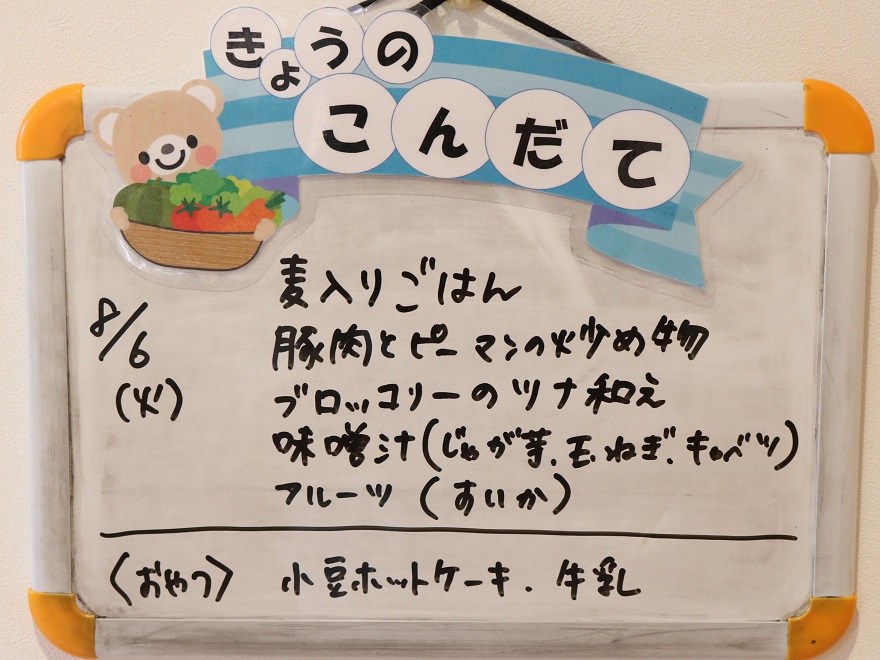 きょうの
こんだて
麦入りごはん
8/6 豚肉とピーマンの炒め物
(火) ブロッコリーのツナ和え
味噌汁(じゃが芋、玉ねぎ、キャベツ)
フルーツ(すいか)
〈おやつ〉 小豆ホットケーキ、牛乳